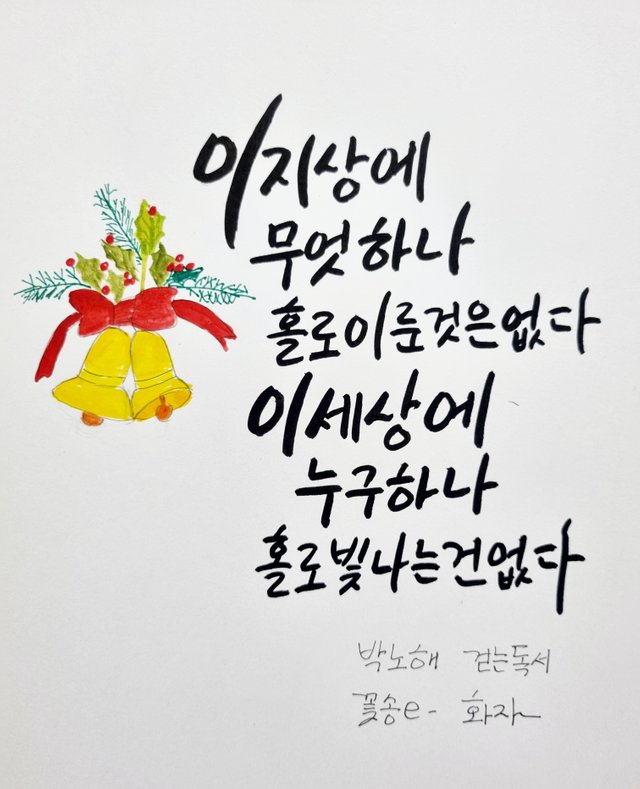 이 지상에
무엇 하나
홀로 이룬 것은 없다
이 세상에
누구 하나
홀로 빛나는 건 없다
박노해 걷는 독서
꽃송e- 화자